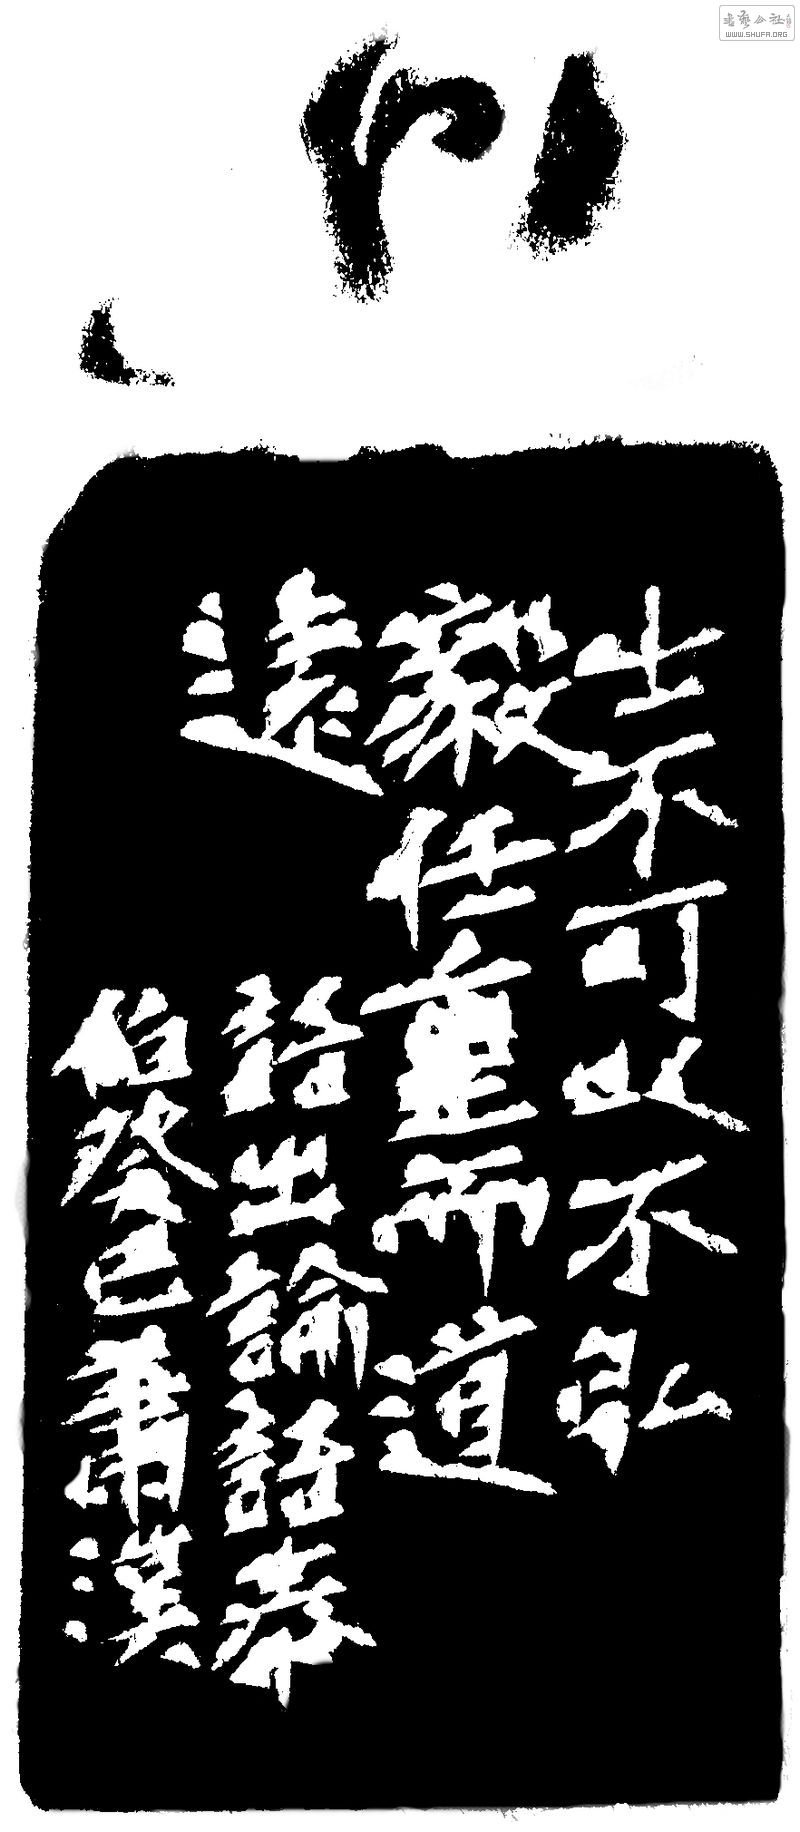 書藝公社
WWW.SHUFA.ORG
士不可以不弘
毅任重而道
遠
語出論語泰
伯癸巳蕭漢